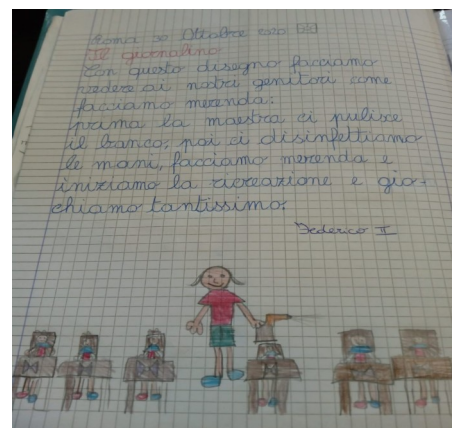 Roma 30 Ottobre 2020
Il giornalino
Con questo disegno facciamo
vedere ai nostri genitori come
facciamo merenda:
prima la maestra ci pulisce
il banco, poi ci disinfettiamo
le mani, facciamo merenda e
iniziamo la ricreazione e gio-
chiamo tantissimo.
Federico II